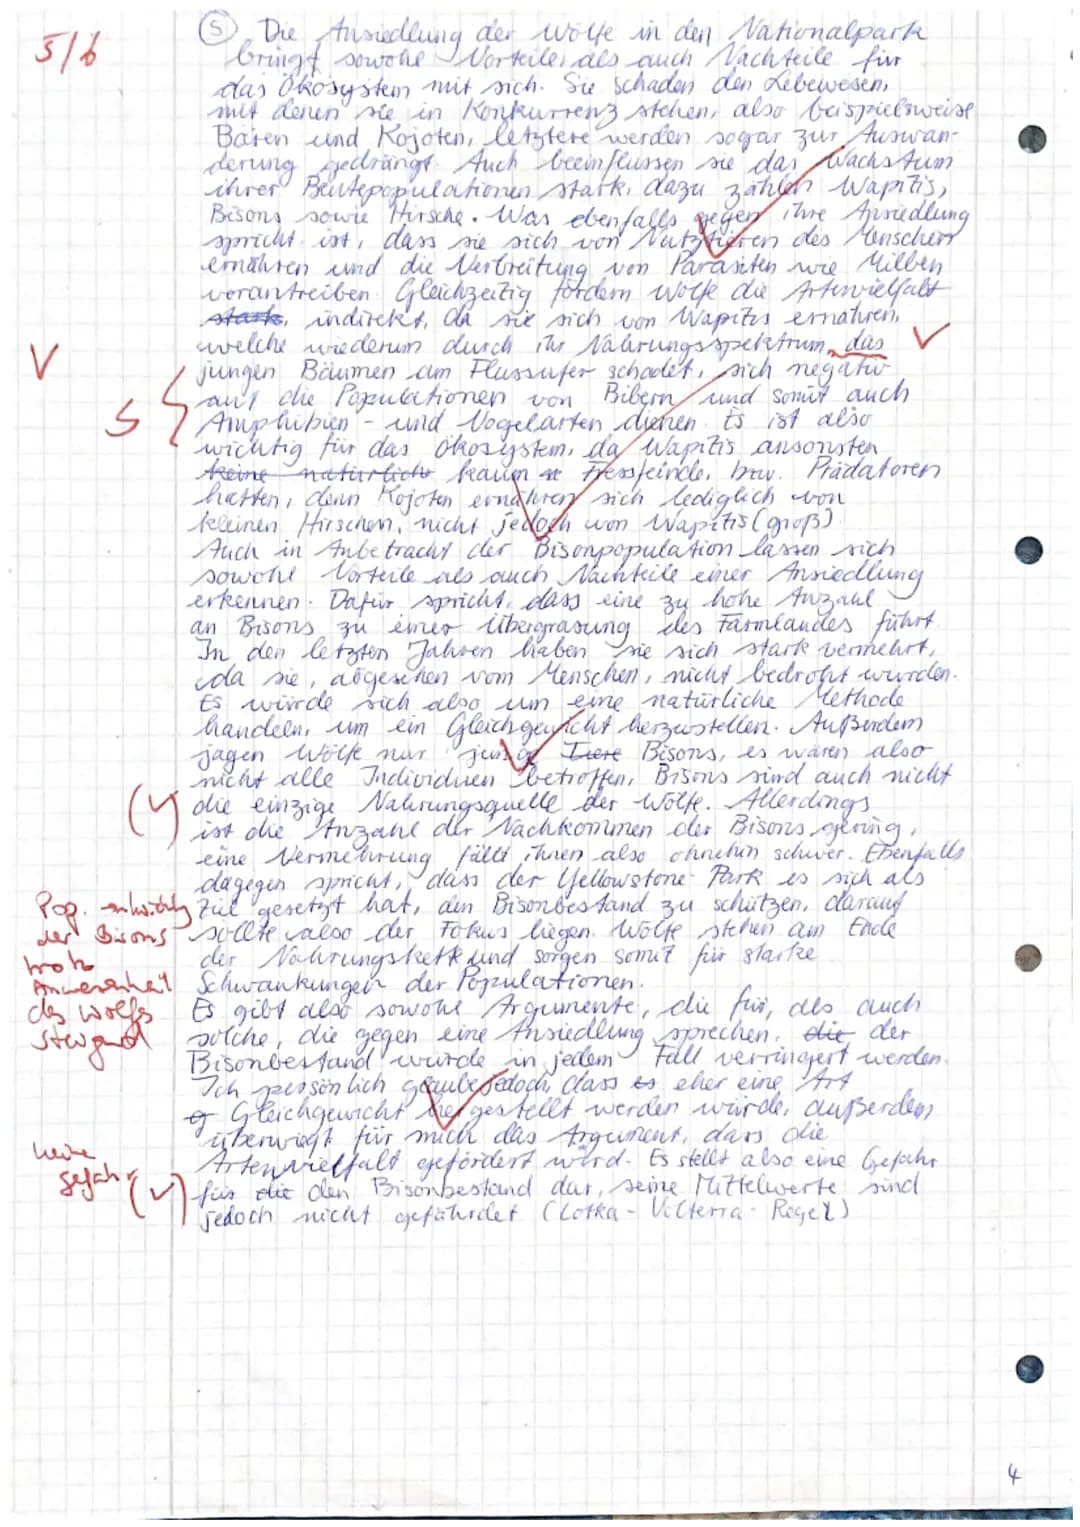 5/6
⑤ Die Ansiedlung der Wölfe in den Nationalpark
bringt sowohl Vorteile, als auch Nachteile für
das Ökosystem mit sich. Sie schaden den Lebewesen,
mit denen sie in Konkurrenz stehen, also beispielsweise
Bären und Kojoten, letztere werden sogar zur Auswan-
derung gedrängt. Auch beeinflussen sie das Wachstum
ihrer Beutepopulationen stark, dazu zählen Wapitis,
Bisons sowie Hirsche. Was ebenfalls gegen ihre Ansiedlung
spricht ist, dass sie sich von Nutztieren des Menschen
ernähren und die Verbreitung von Parasiten wie Milben
vorantreiben. Gleichzeitig fördern Wölfe die Artenvielfalt
stark, indirekt, da sie sich von Wapitis ernähren,
welche wiederum durch ihr Nahrungsspektrum, das
V
jungen Bäumen am Flussufer schadet, sich negativ
S
auf die Populationen von Bibern und somit auch
Amphibien- und Vogelarten dienen. Es ist also
wichtig für das Ökosystem, da Wapitis ansonsten
keine natürliche kaum Fressfeinde, bzw. Prädatoren
hätten, denn Kojoten ernähren sich lediglich von
kleinen Hirschen, nicht jedoch von Wapitis (groß).
Auch in Anbetracht der Bisonpopulation lassen sich
sowohl Vorteile als auch Nachteile einer Ansiedlung
erkennen. Dafür spricht, dass eine zu hohe Anzahl
an Bisons zu einer Übergrasung des Farmlandes führt.
In den letzten Jahren haben sie sich stark vermehrt,
da sie, abgesehen vom Menschen, nicht bedroht wurden.
Es würde sich also um eine natürliche Methode
handeln, um ein Gleichgewicht herzustellen. Außerdem
jagen Wölfe nur junge Tiere Bisons, es wären also
nicht alle Individuen betroffen, Bisons sind auch nicht
die einzige Nahrungsquelle der Wölfe. Allerdings
ist die Anzahl der Nachkommen der Bisons gering,
eine Vermehrung fällt ihnen also ohnehin schwer. Ebenfalls
dagegen spricht, dass der Yellowstone-Park es sich als
Ziel gesetzt hat, den Bisonbestand zu schützen, darauf
sollte also der Fokus liegen. Wölfe stehen am Ende
der Nahrungskette und sorgen somit für starke
Schwankungen der Populationen.
Pop. entwicklg
der Bisons
trotz
Anwesenheit
des Wolfes
steigend
Es gibt also sowohl Argumente, die für, als auch
solche, die gegen eine Ansiedlung sprechen, die der
Bisonbestand würde in jedem Fall verringert werden.
Ich persönlich glaube jedoch, dass es eher eine Art
Gleichgewicht hergestellt werden würde, außerdem
überwiegt für mich das Argument, dass die
Artenvielfalt gefördert wird. Es stellt also eine Gefahr
keine
Gefahr
für die den Bisonbestand dar, seine Mittelwerte sind
jedoch nicht gefährdet (Lotka-Volterra-Regel)
4